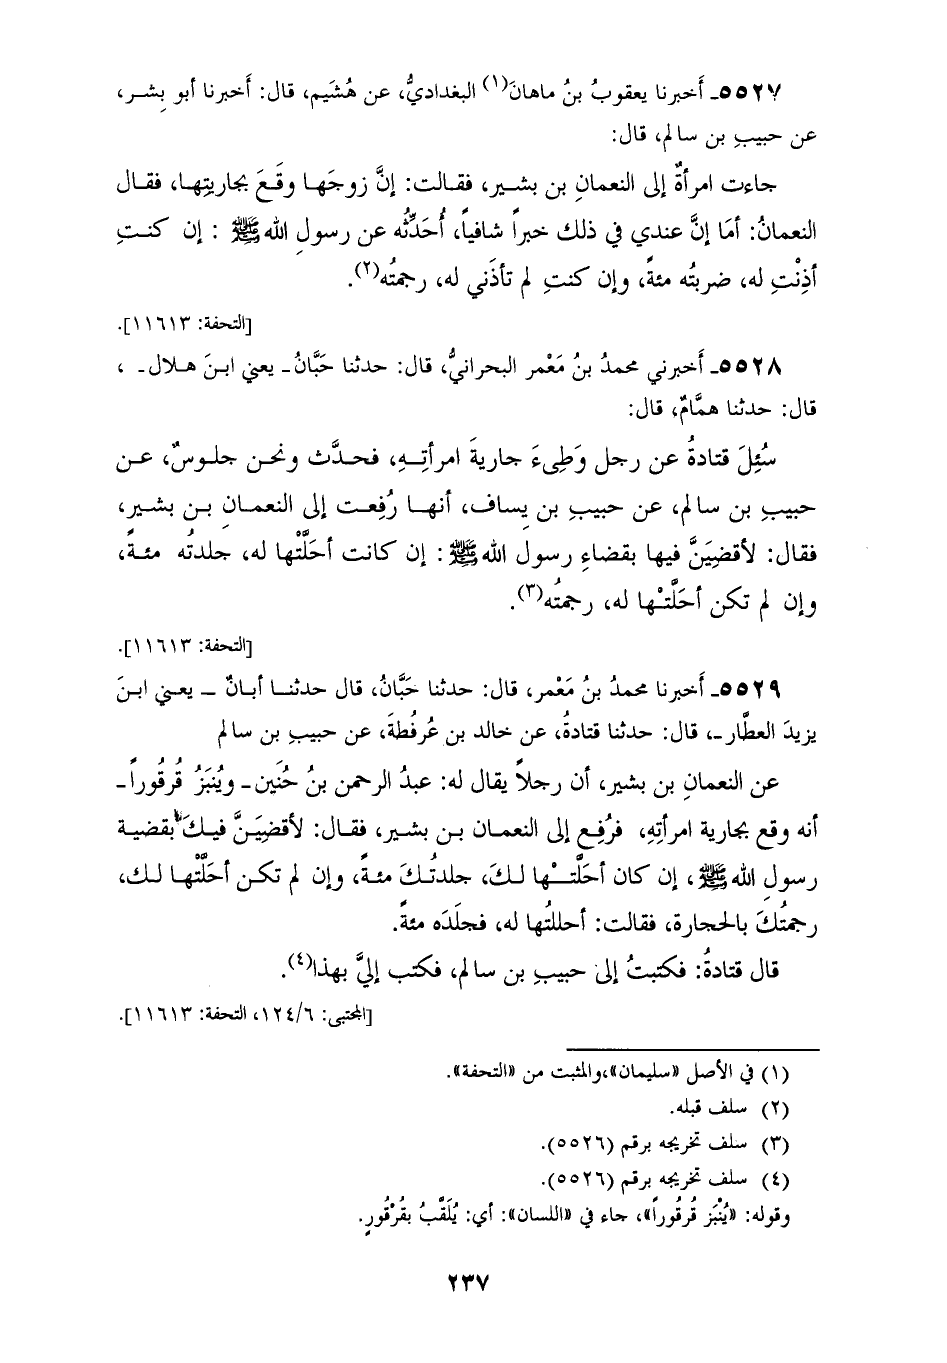 ٥٥٢٧ـ أَخبرنا يعقوبُ بنُ ماهانَ(١) البغداديُّ، عن هُشَيم، قال: أَخبرنا أبو بِشر،
عن حبيبِ بن سالم، قال:
جاءت امرأةٌ إلى النعمانِ بن بشير، فقالت: إنَّ زوجَها وقَعَ بجاريتِها، فقال
النعمانُ: أمَا إنَّ عندي في ذلك خبراً شافياً، أُحَدِّثُه عن رسولِ الله ﷺ : إن كنتِ
أذِنْتِ له، ضربتُه مئةً، وإن كنتِ لم تأذَني له، رجمتُه(٢).
[التحفة: ١١٦١٣].
٥٥٢٨ـ أَخبرني محمدُ بنُ مَعْمر البحرانيُّ، قال: حدثنا حَبَّانُ ـ يعني ابنَ هلال ـ ،
قال: حدثنا همَّامٌ، قال:
سُئِلَ قتادةُ عن رجل وَطِیءَ جاريةَ امرأتِهِ، فحدَّث ونحن جلوسٌ، عن
حبيبِ بن سالم، عن حبيبِ بن يِساف، أنها رُفِعت إلى النعمانِ بن بشير،
فقال: لأقضِيَنَّ فيها بقضاءِ رسول الله ﷺ : إن كانت أحَلَّتْها له، جلدتُه مئةً،
وإن لم تكن أحَلَّتْها له، رجمتُه(٣).
[التحفة: ١١٦١٣].
٥٥٢٩ـ أَخبرنا محمدُ بنُ مَعْمر، قال: حدثنا حَبَّانُ، قال حدثنا أبانٌ ـ يعني ابنَ
يزيدَ العطَّار ـ، قال: حدثنا قتادةُ، عن خالد بن عُرفُطةَ، عن حبيبِ بن سالم
عن النعمانِ بن بشير، أن رجلاً يقال له: عبدُ الرحمن بنُ حُنَين ـ ويُنبَزُ قُرقُوراً ـ
أنه وقع بجارية امرأتِهِ، فرُفِع إلى النعمان بن بشير، فقال: لأقضِيَنَّ فيكَ بقضية
رسولِ الله ﷺ ، إن كان أحلَّتْها لكَ، جلدتُكَ مئةً، وإن لم تكن أحَلَّتْها لك،
رجمتُكَ بالحجارة، فقالت: أحللتُها له، فجلَدَه مئةً.
قال قتادةُ: فكتبتُ إلى حبيبِ بن سالم، فكتب إليَّ بهذا(٤).
[المجتبى: ١٢٤/٦، التحفة: ١١٦١٣].
(١) في الأصل «سليمان»،والمثبت من «التحفة».
(٢) سلف قبله.
(٣) سلف تخريجه برقم (٥٥٢٦).
(٤) سلف تخريجه برقم (٥٥٢٦).
وقوله: «يُنْبَز قُرقُوراً»، جاء في «اللسان»: أي: يُلَقَّبُ بقُرْقُورٍ.
٢٣٧